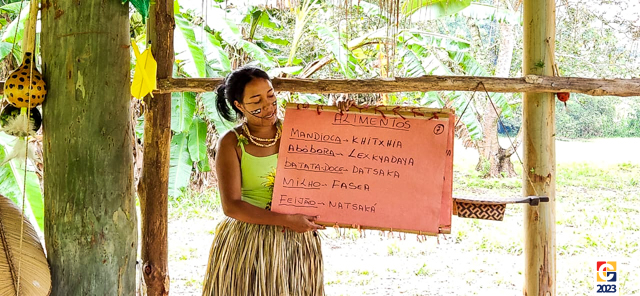 ALIMENTOS
MANDIOCA - KHITXHIA
ABÓBORA - LEXKYADAYA
BATATA-DOCE - DATSAKA
MILHO - FASEA
FEIJÃO - NATSAKÁ
2023